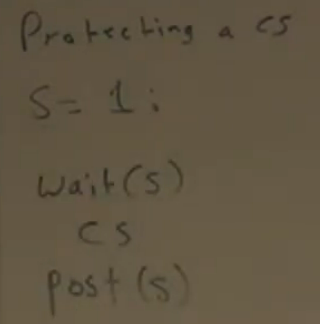 Protecting a cs
S = 1;
wait(s)
cs
post(s)